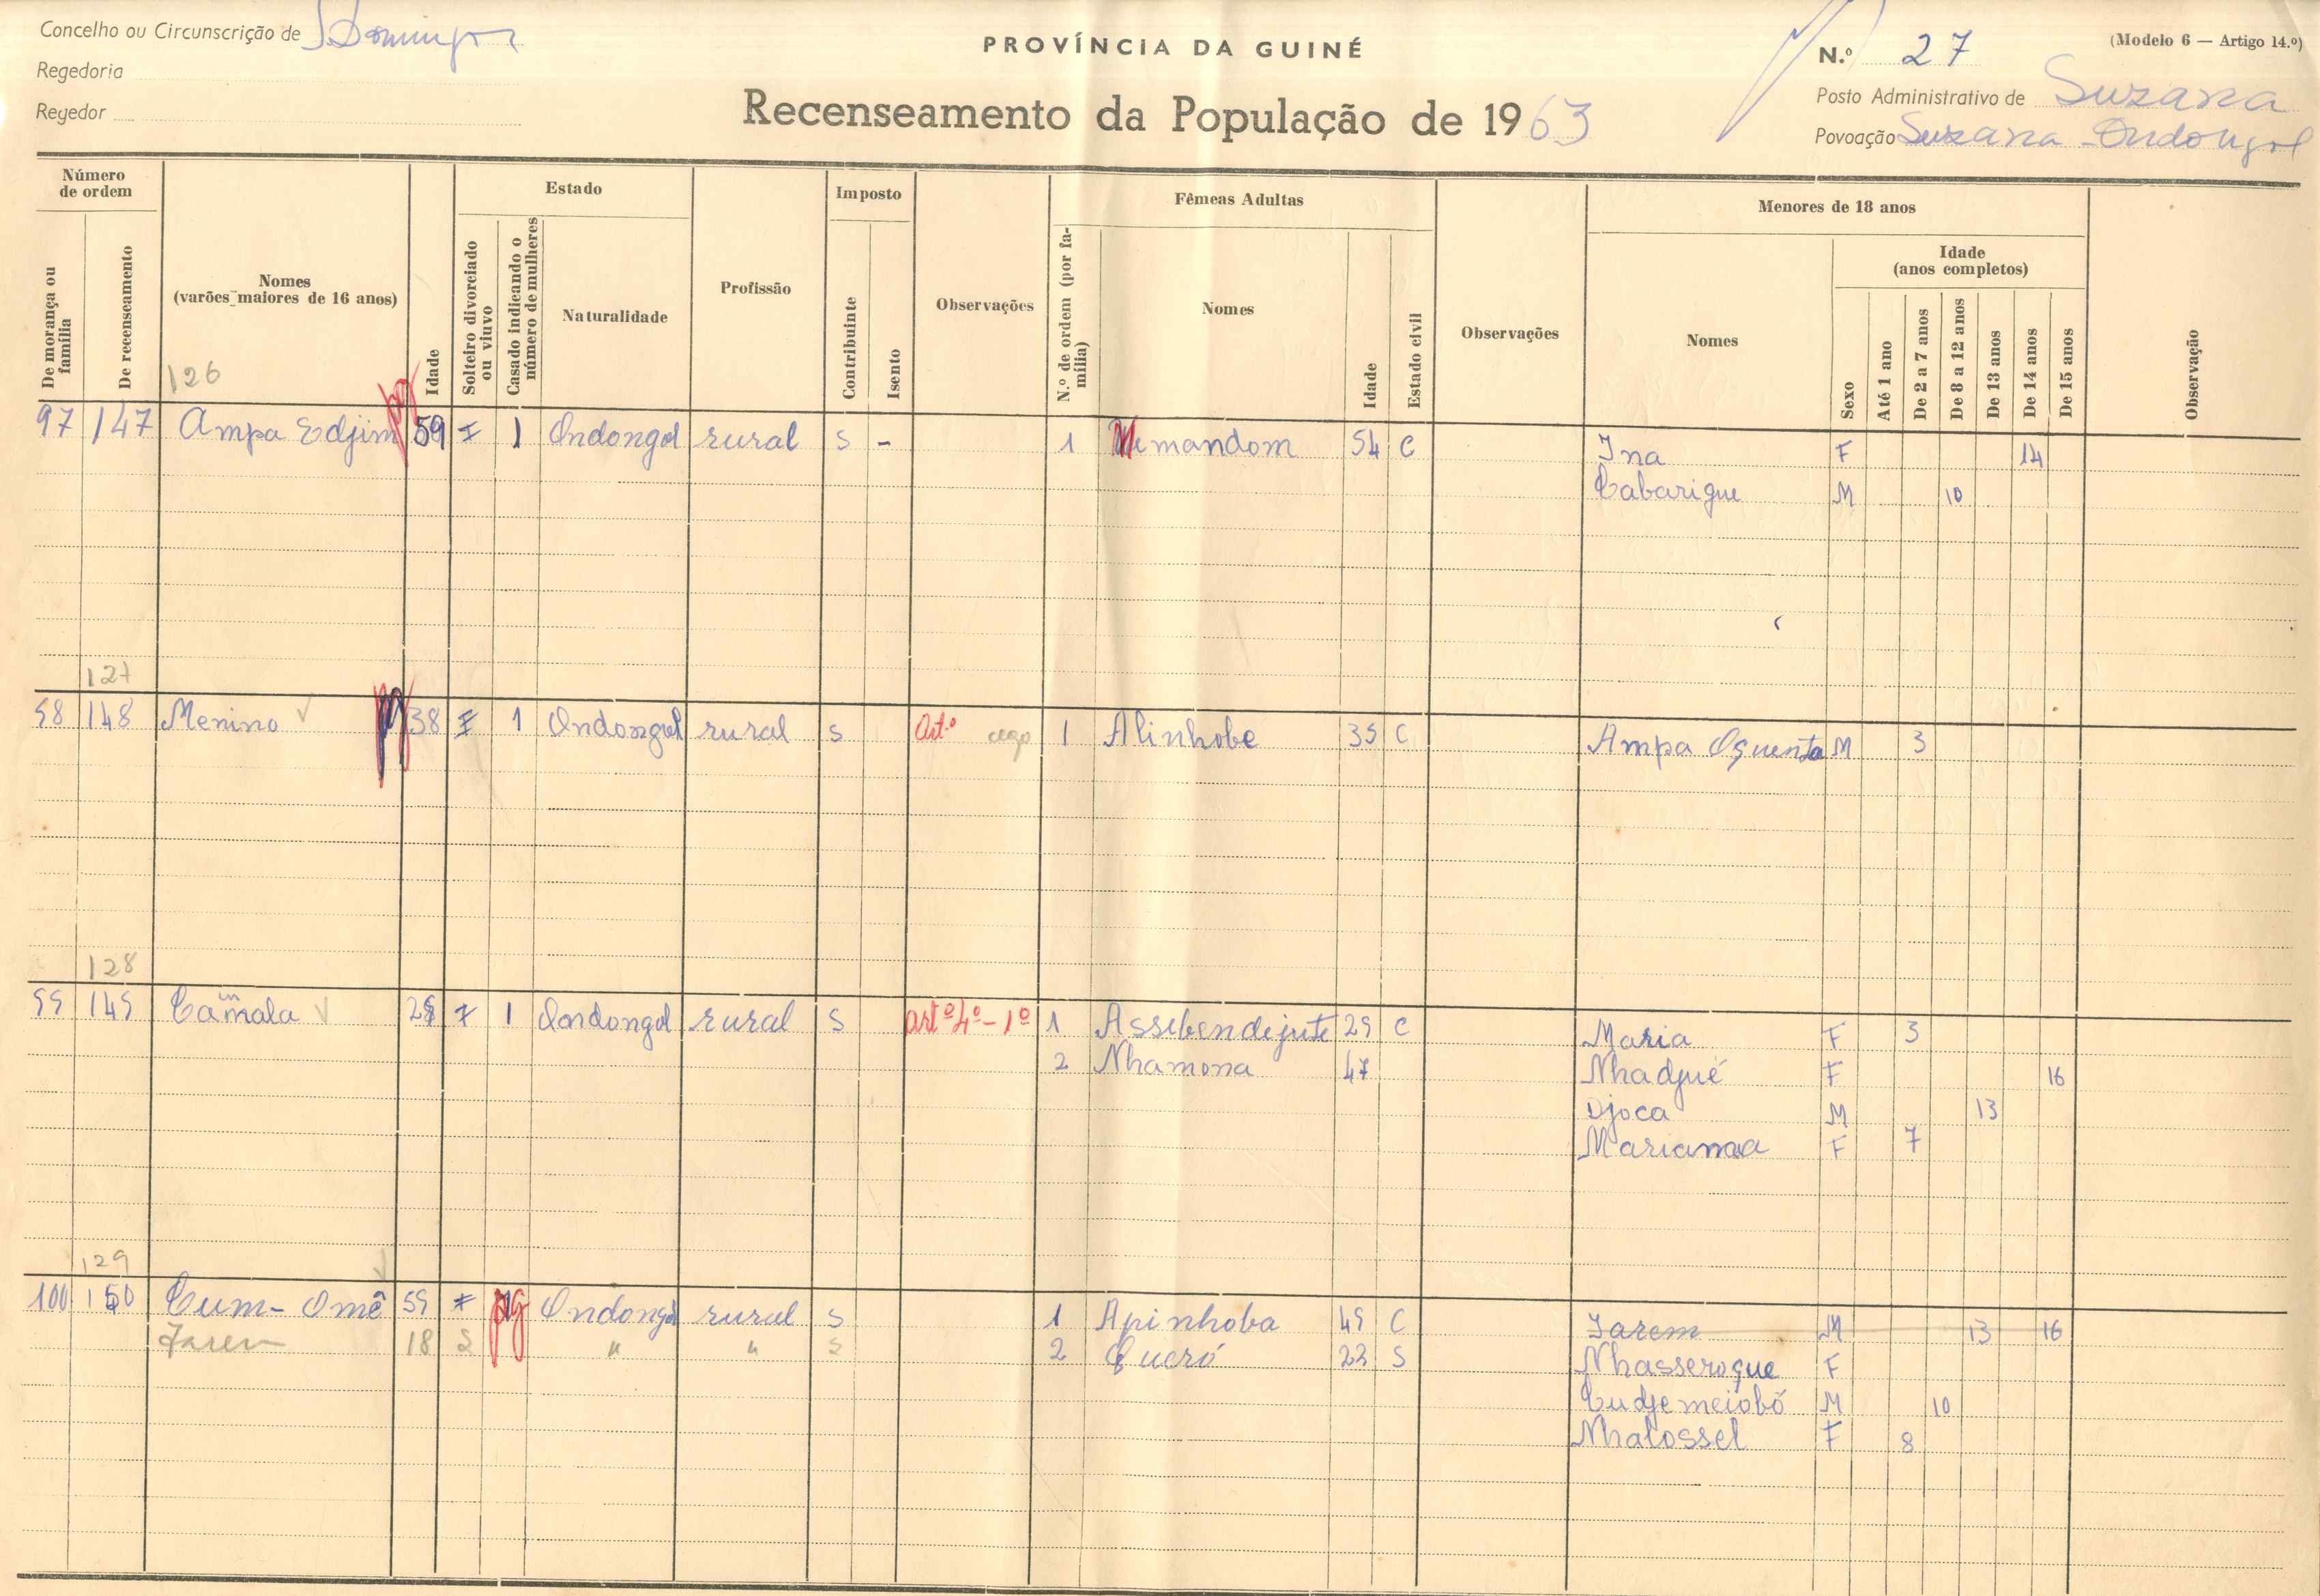 Concelho ou Circunscrição de S. Domingos
PROVÍNCIA DA GUINÉ
N.º 27
(Modelo 6 — Artigo 14.º)
Regedoria
Posto Administrativo de Suzana
Regedor
Recenseamento da População de 1963
Povoação Suzana - Ondongol
Número de ordem
De morança ou família
De recenseamento
Nomes
(varões maiores de 16 anos)
Idade
Estado
Solteiro divorciado ou viuvo
Casado indicando o número de mulheres
Naturalidade
Profissão
Imposto
Contribuinte
Isento
Observações
Fêmeas Adultas
N.º de ordem (por família)
Nomes
Idade
Estado civil
Observações
Menores de 18 anos
Nomes
Sexo
Idade
(anos completos)
Até 1 ano
De 2 a 7 anos
De 8 a 12 anos
De 13 anos
De 14 anos
De 15 anos
Observação
126
97 147 Ampa Edjim pg 59 1 Ondongol rural S - 1 mandom 54 C Ina F 14
Cabarigue M 10
127
98 148 Menino 38 1 Ondongol rural S Art.º cego 1 Alinhobe 39 C Ampa Oquenta M 3
128
99 149 Camala 1 Ondongol rural S artº 4º - 1º 1 Assebendejute 29 C Maria F 3
2 Nhamona 47 Nhadjué F 16
Djoca M 13
Mariama F 7
129
100 150 Cum-Omê 59 pg Ondongol rural S 1 Apinhoba 49 C Jarem M 13 16
Jarem 18 S " " S 2 Queró 22 S Nhasseroque F
Cudjemeiobó M 10
Nhalossel F 8